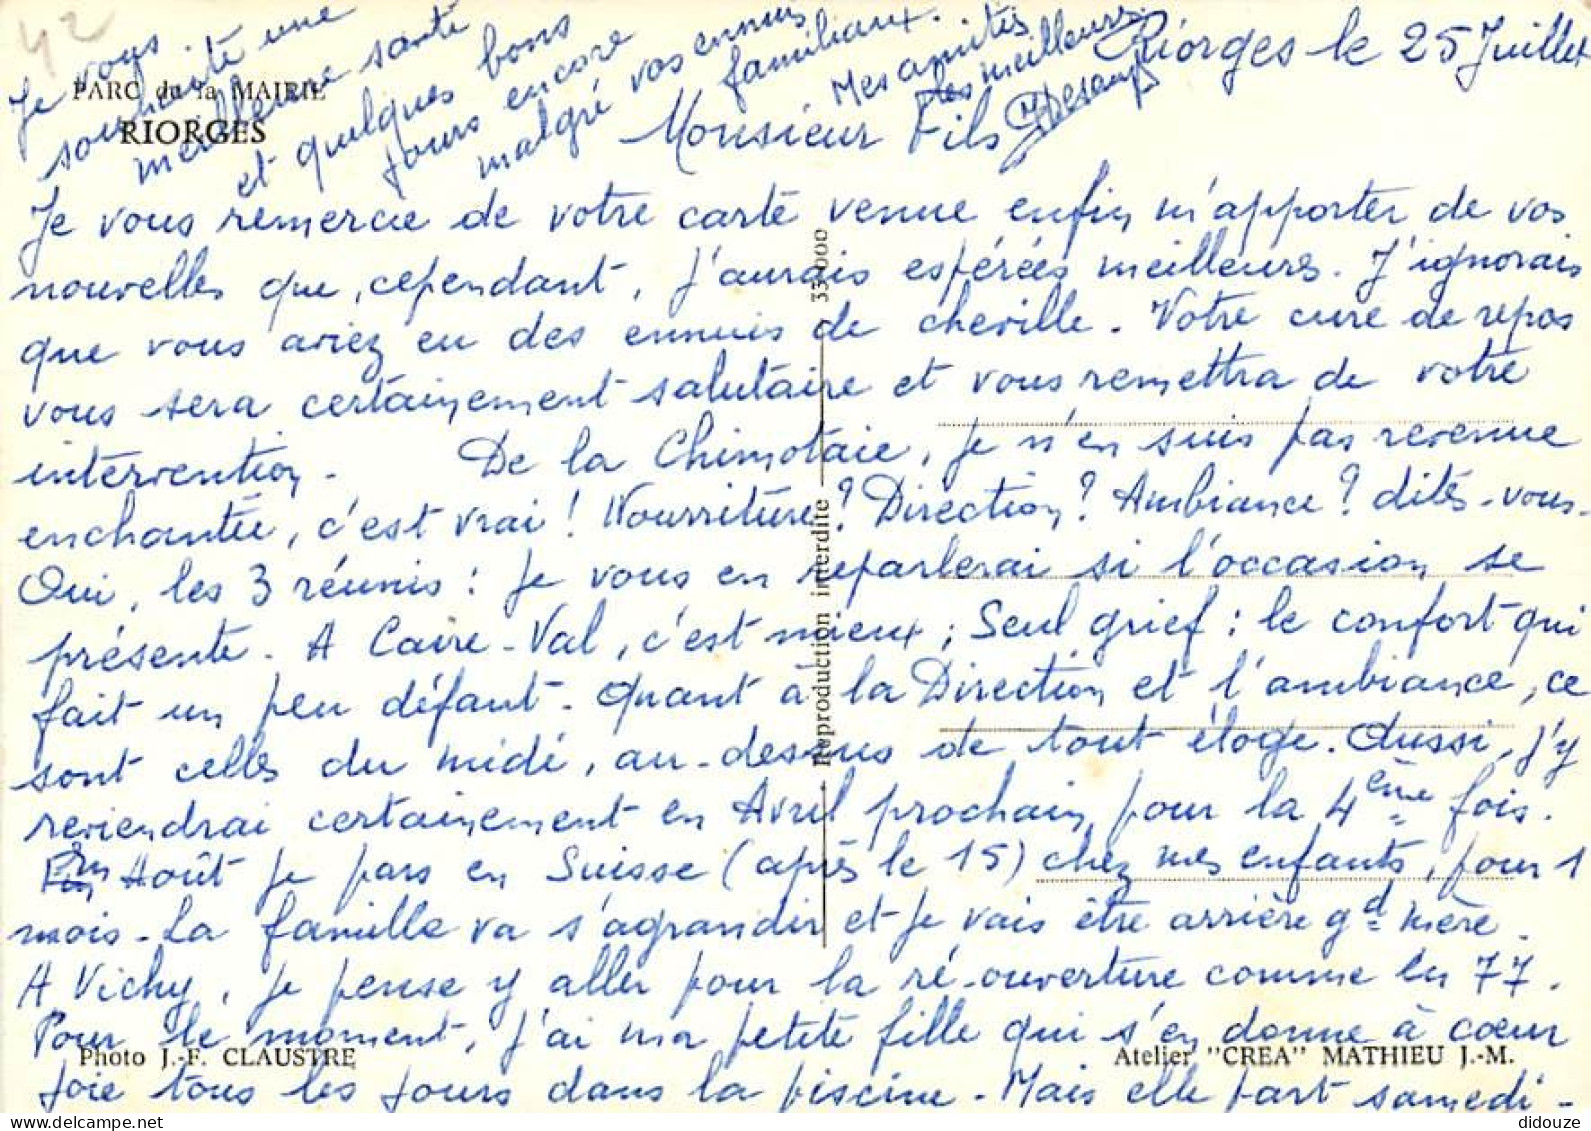 42
PARC de la MAIRIE
RIORGES
Riorges le 25 Juillet
Monsieur Fils
Je vous remercie de votre carte venue enfin m'apporter de vos
nouvelles que, cependant, j'aurais espérées meilleures. J'ignorais
que vous aviez eu des ennuis de cheville. Votre cure de repos
vous sera certainement salutaire et vous remettra de votre
intervention. De la Chimotaie, je n'en suis pas revenue
enchantée, c'est vrai ! Nourriture ? Direction ? Ambiance ? dites-vous.
Oui, les 3 réunis : je vous en reparlerai si l'occasion se
présente. A Caire-Val, c'est mieux ; Seul grief : le confort qui
fait un peu défaut. Quant à la Direction et l'ambiance, ce
sont celles du midi, au-dessus de tout éloge. Aussi, j'y
reviendrai certainement en Avril prochain pour la 4ème fois.
En Août je pars en Suisse (après le 15) chez mes enfants, pour 1
mois. La famille va s'agrandir et je vais être arrière gd mère.
A Vichy, je pense y aller pour la ré-ouverture comme en 77.
Pour le moment, j'ai ma petite fille qui s'en donne à coeur
joie tous les jours dans la piscine. Mais elle part samedi -
Je vous
souhaite une
meilleure santé
et quelques bons
jours encore
malgré vos ennuis
familiaux.
Mes amitiés
les meilleures
Reproduction interdite
333.000
Photo J.-F. CLAUSTRE
Atelier "CREA" MATHIEU J.-M.
delcampe.net
didouze